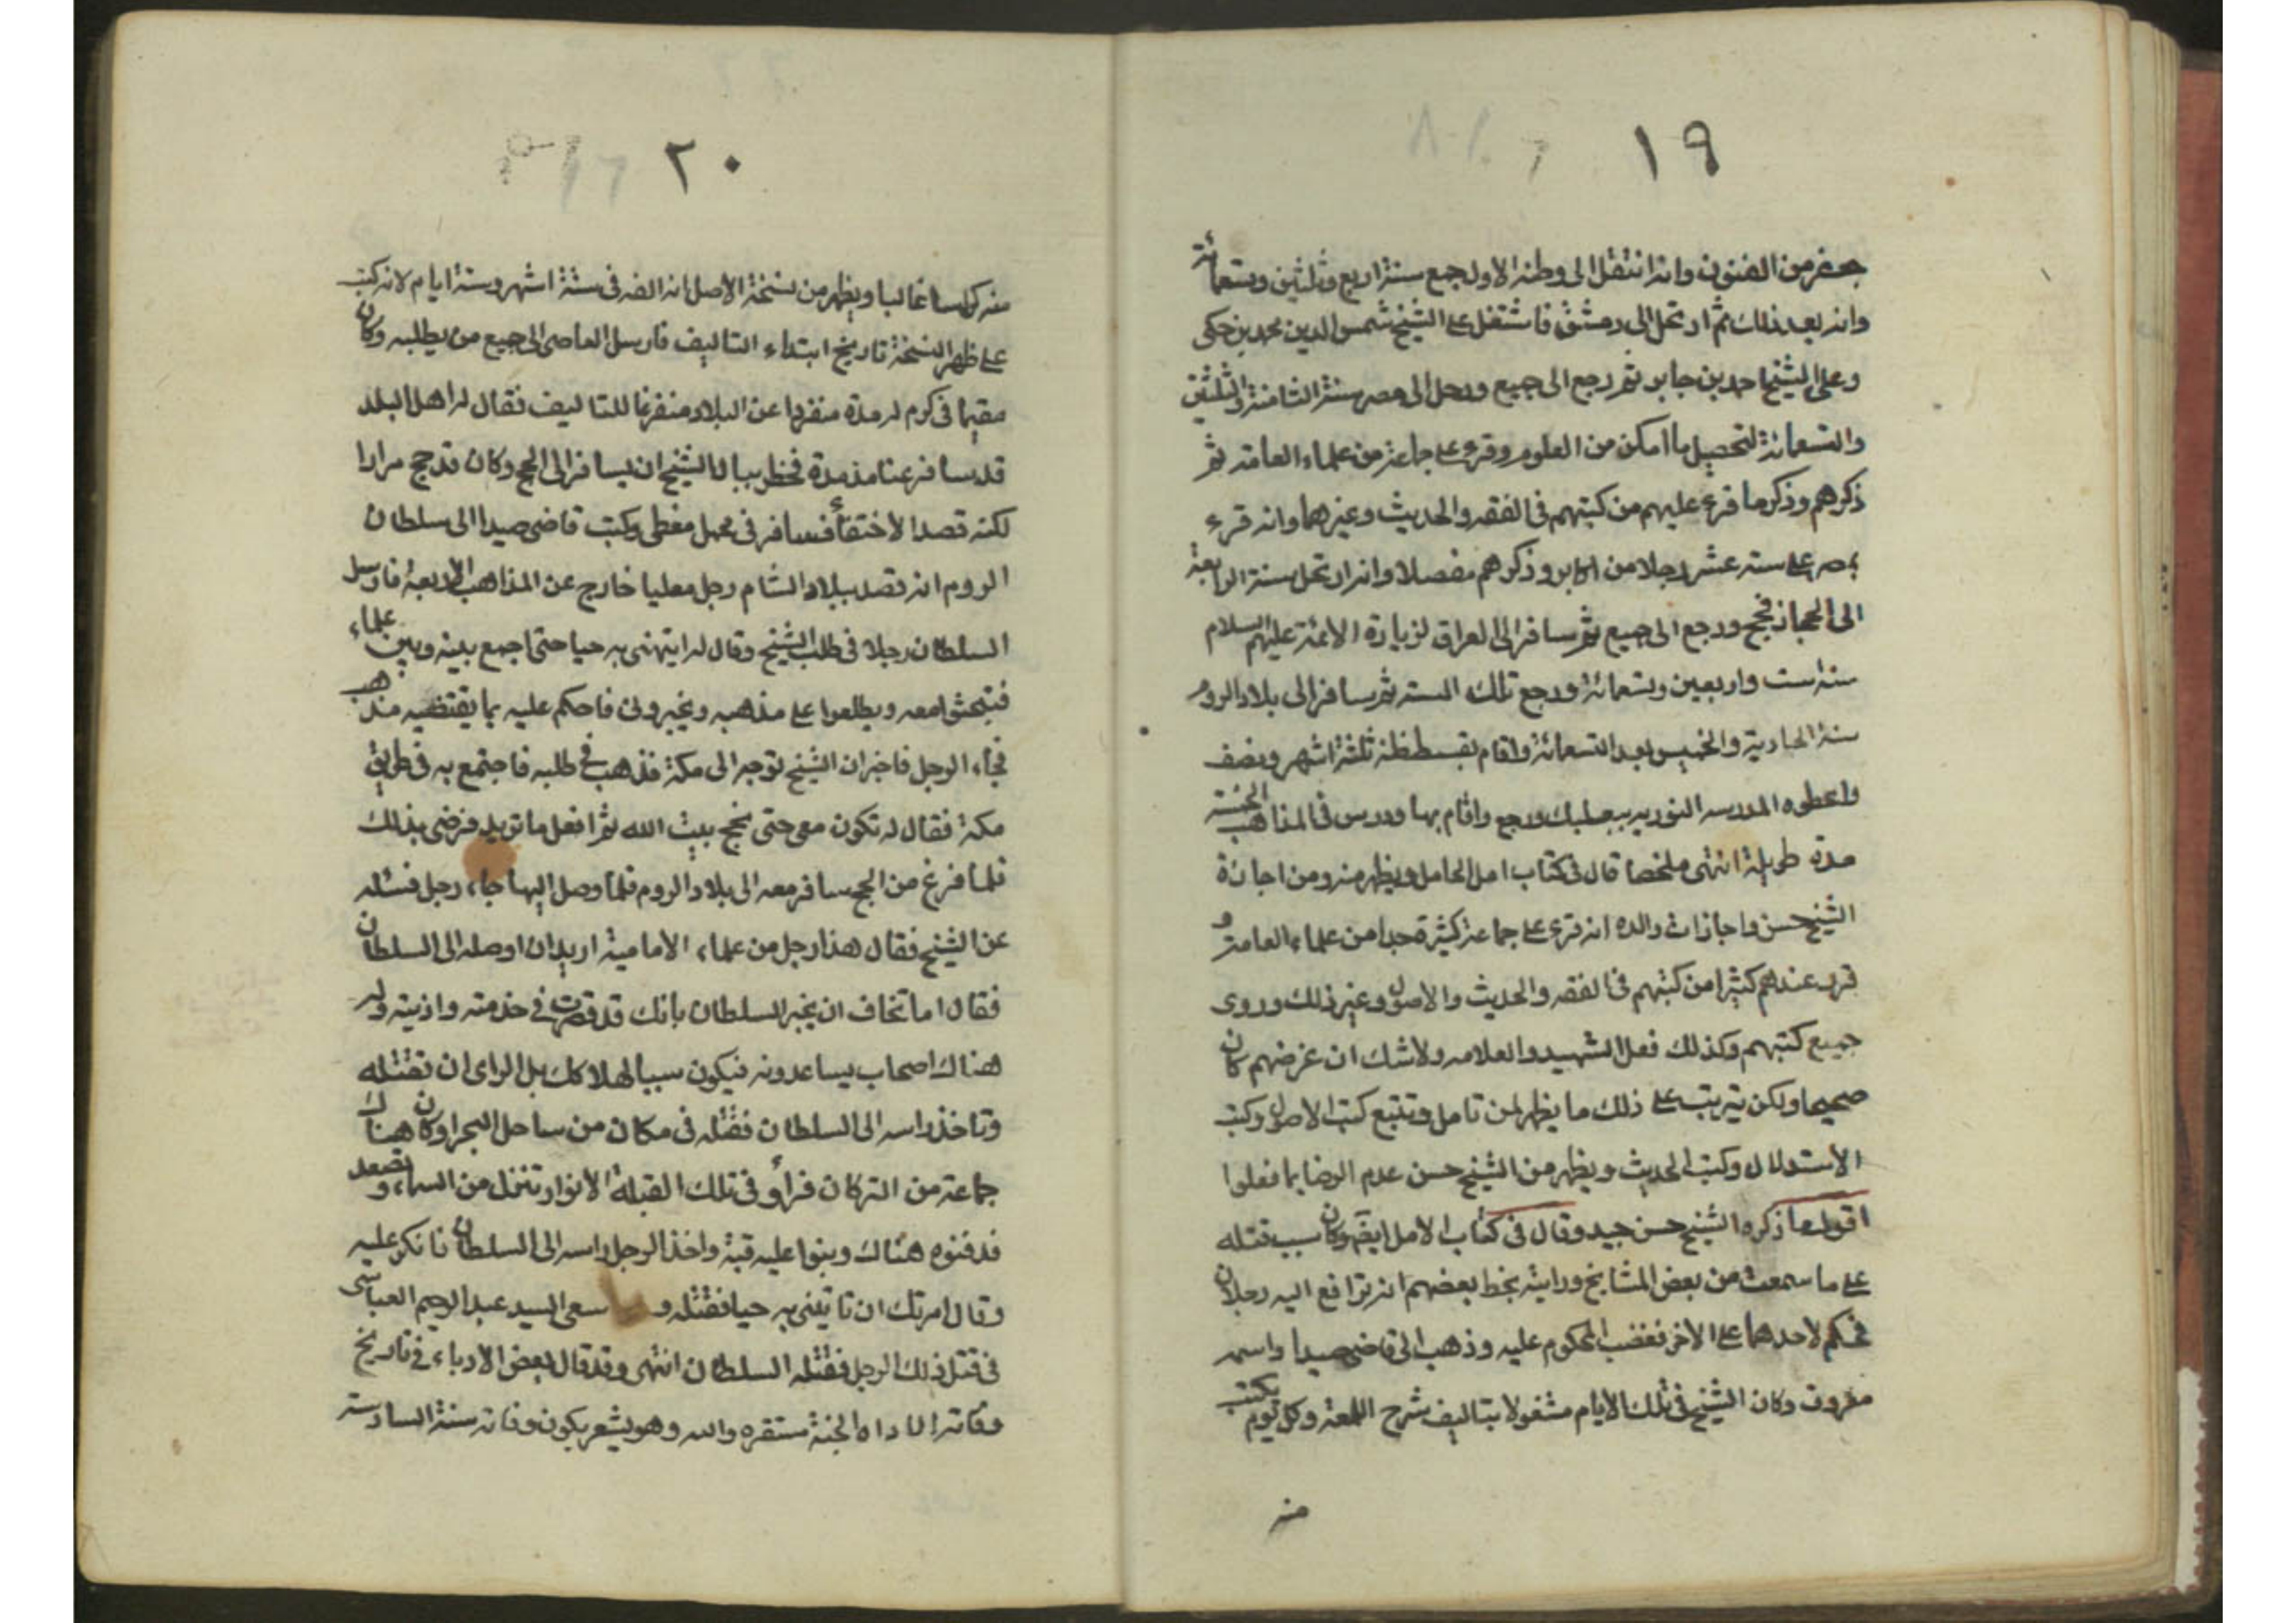 ١٩
جعفر من الفنون وانه انتقل الى وطنه الاول جبع سنة اربع وثلثين وتسعمائة
وانه بعد ذلك ثم ارتحل الى دمشق فاشتغل على الشيخ شمس الدين محمد بن حكى
وعلى الشيخ احمد بن جابر ثم رجع الى جبع ورحل الى مصر سنة الثامنة والثلثين
والتسعمائة لتحصيل ما امكن من العلوم وقرء على جماعة من علماء العامة ثم
ذكرهم وذكر ما قرء عليهم من كتبهم فى الفقه والحديث وغيرهما وانه قرء
بمصر على ستة عشر رجلا من اكابر وذكرهم مفصلا وانه ارتحل سنة الرابعة
الى الحجاز فحج ورجع الى جبع ثم سافر الى العراق لزيارة الائمة عليهم السلام
سنة ست واربعين وتسعمائة ورجع تلك السنه ثم سافر الى بلاد الروم
سنة الحادية والخمسين بعد التسعمائة واقام بقسطنطنة ثلثة اشهر ونصف
واعطوه المدرسه النوريه ببعلبك ورجع واقام بها ودرس فى المذاهب الخمسة
مدة طويلة انتهى ملخصا قال فى كتاب امل الحامل ويظهر منه ومن اجازة
الشيخ حسن واجازات والده انه قرء على جماعة كثيرة جدا من علماء العامة و
قرء عندهم كثيرا من كتبهم فى الفقه والحديث والاصول وغير ذلك وروى
جميع كتبهم وكذلك فعل الشهيد والعلامه ولا شك ان غرضهم كان
صحيحا ولكن يترتب على ذلك ما يظهر لمن تامل وتتبع كتب الاصول وكتب
الاستدلال وكتب الحديث ويظهر من الشيخ حسن عدم الرضا بما فعلوا
اقول ما ذكره الشيخ حسن جيد وقال فى كتاب الامل ايضا وكان سبب قتله
على ما سمعت من بعض المشايخ ورايته بخط بعضهم انه ترافع اليه رجلان
فحكم لاحدهما على الاخر فغضب المحكوم عليه وذهب الى قاضى صيدا واسمه
معروف وكان الشيخ فى تلك الايام مشغولا بتاليف شرح اللمعة وكل يوم يكتب
منه
٢٠
منه كراسا غالبا ويظهر من نسخة الاصل انه الفه فى ستة اشهر وستة ايام لانه كتب
على ظهر النسخة تاريخ ابتداء التاليف فارسل القاضى الى جبع من يطلبه وكان
مقيما فى كرم له مدة منفردا عن البلاد متفرغا للتاليف فقال له اهل البلد
قد سافر عنا منذ مدة فخطر ببال الشيخ ان يسافر الى الحج وكان قد حج مرارا
لكنه قصد الاختفاء فسافر فى محمل مغطى وكتب قاضى صيدا الى سلطان
الروم انه قد وجد ببلاد الشام رجل خارج عن المذاهب الاربعة فارسل
السلطان رجلا فى طلب الشيخ وقال له ايتنى به حيا حتى اجمع بينه وبين علماء
فيبحثوا معه ويطلعوا على مذهبه ويخبرونى فاحكم عليه بما يقتضيه مذهب
فجاء الرجل فاخبر ان الشيخ توجه الى مكة فذهب فى طلبه فاجتمع به فى طريق
مكة فقال له تكون معى حتى نحج بيت الله ثم افعل ما تريد فرضى بذلك
فلما فرغ من الحج سافر معه الى بلاد الروم فلما وصل اليها جاء رجل فسئله
عن الشيخ فقال هذا رجل من علماء الامامية اريد ان اوصله الى السلطان
فقال اما تخاف ان يخبر السلطان بانك قد قصرت فى خدمته واذيته وله
هناك اصحاب يساعدونه فيكون سببا لهلاكك بل الراى ان تقتله
وتاخذ راسه الى السلطان فقتله فى مكان من ساحل البحر وكان هناك
جماعة من التركان فراو فى تلك الليلة الانوار تنزل من السماء وتصعد
فدفنوه هناك وبنوا عليه قبة واخذ الرجل راسه الى السلطان فانكر عليه
وقال امرتك ان تاتينى به حيا فقتلته و سعى السيد عبد الرحيم العباسى
فى قتل ذلك الرجل فقتله السلطان انتهى وقد قال بعض الادباء فى تاريخ
وفاته الاداه الجنة مستقره والله وهو يشعر بكون وفاته سنة السادسة